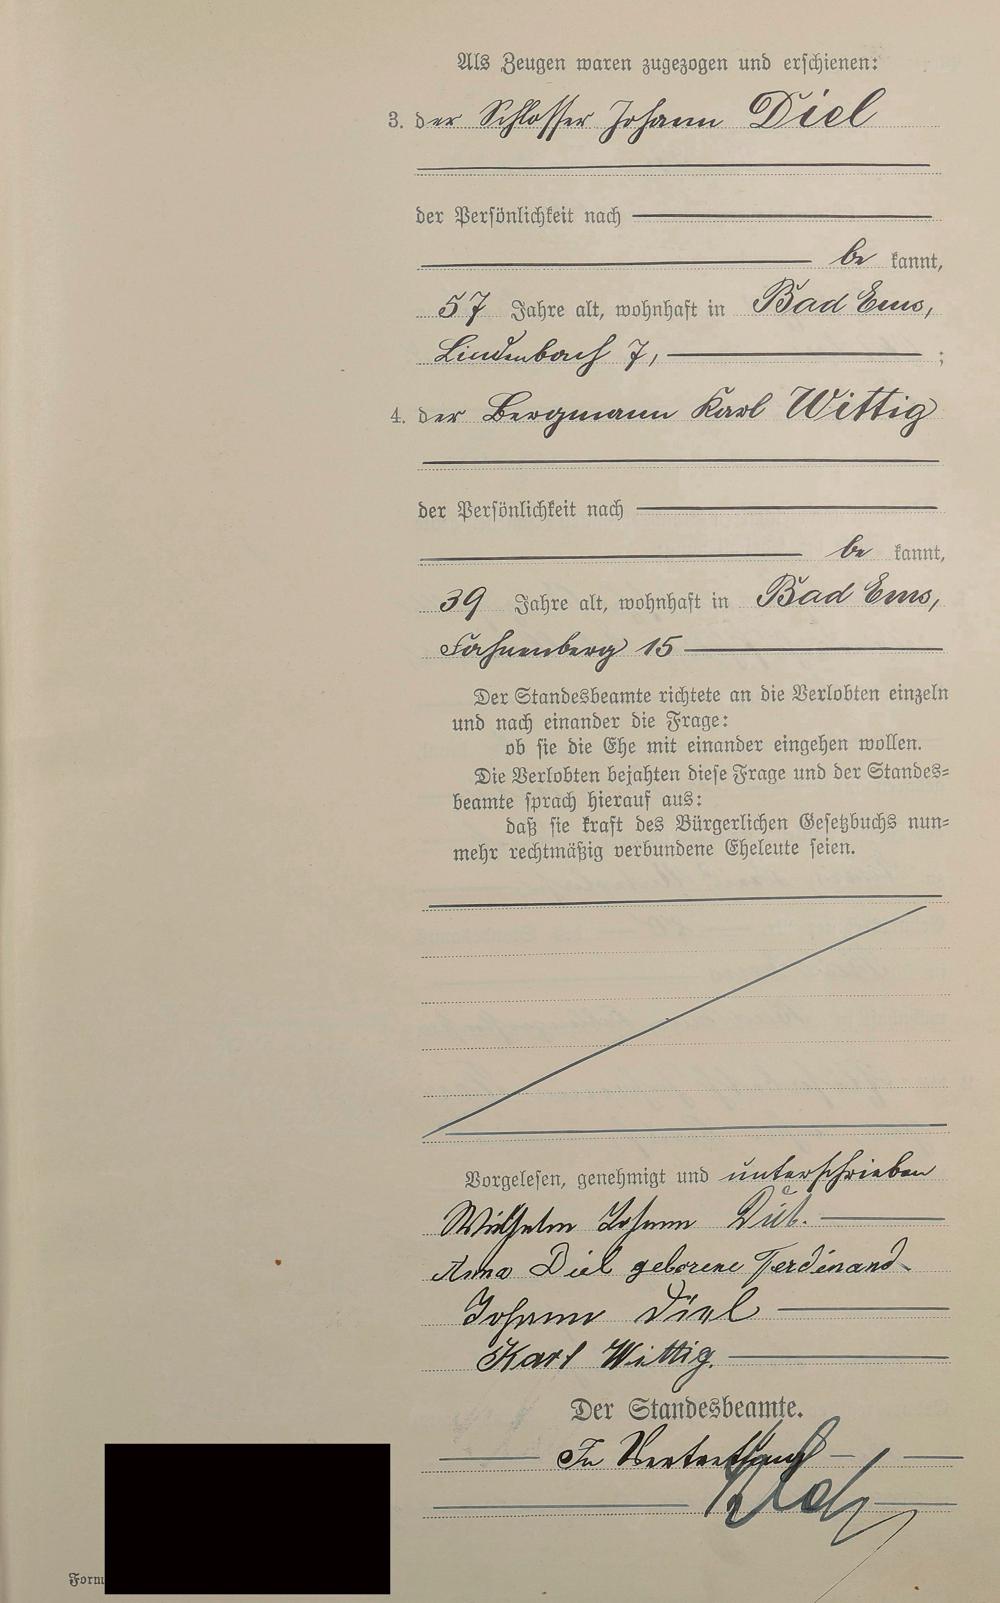 Als Zeugen waren zugezogen und erschienen:
3. der Schlosser Johann Diel
der Persönlichkeit nach
be kannt,
57 Jahre alt, wohnhaft in Bad Ems,
Lindenbach 7, ;
4. der Bergmann Karl Wittig
der Persönlichkeit nach
be kannt,
39 Jahre alt, wohnhaft in Bad Ems,
Fahnenberg 15
Der Standesbeamte richtete an die Verlobten einzeln
und nach einander die Frage:
ob sie die Ehe mit einander eingehen wollen.
Die Verlobten bejahten diese Frage und der Standes-
beamte sprach hierauf aus:
daß sie kraft des Bürgerlichen Gesetzbuchs nun-
mehr rechtmäßig verbundene Eheleute seien.
Vorgelesen, genehmigt und unterschrieben
Wilhelm Johann Diel.
Anna Diel geborene Ferdinand
Johann Diel
Karl Wittig.
Der Standesbeamte.
In Vertretung
Form